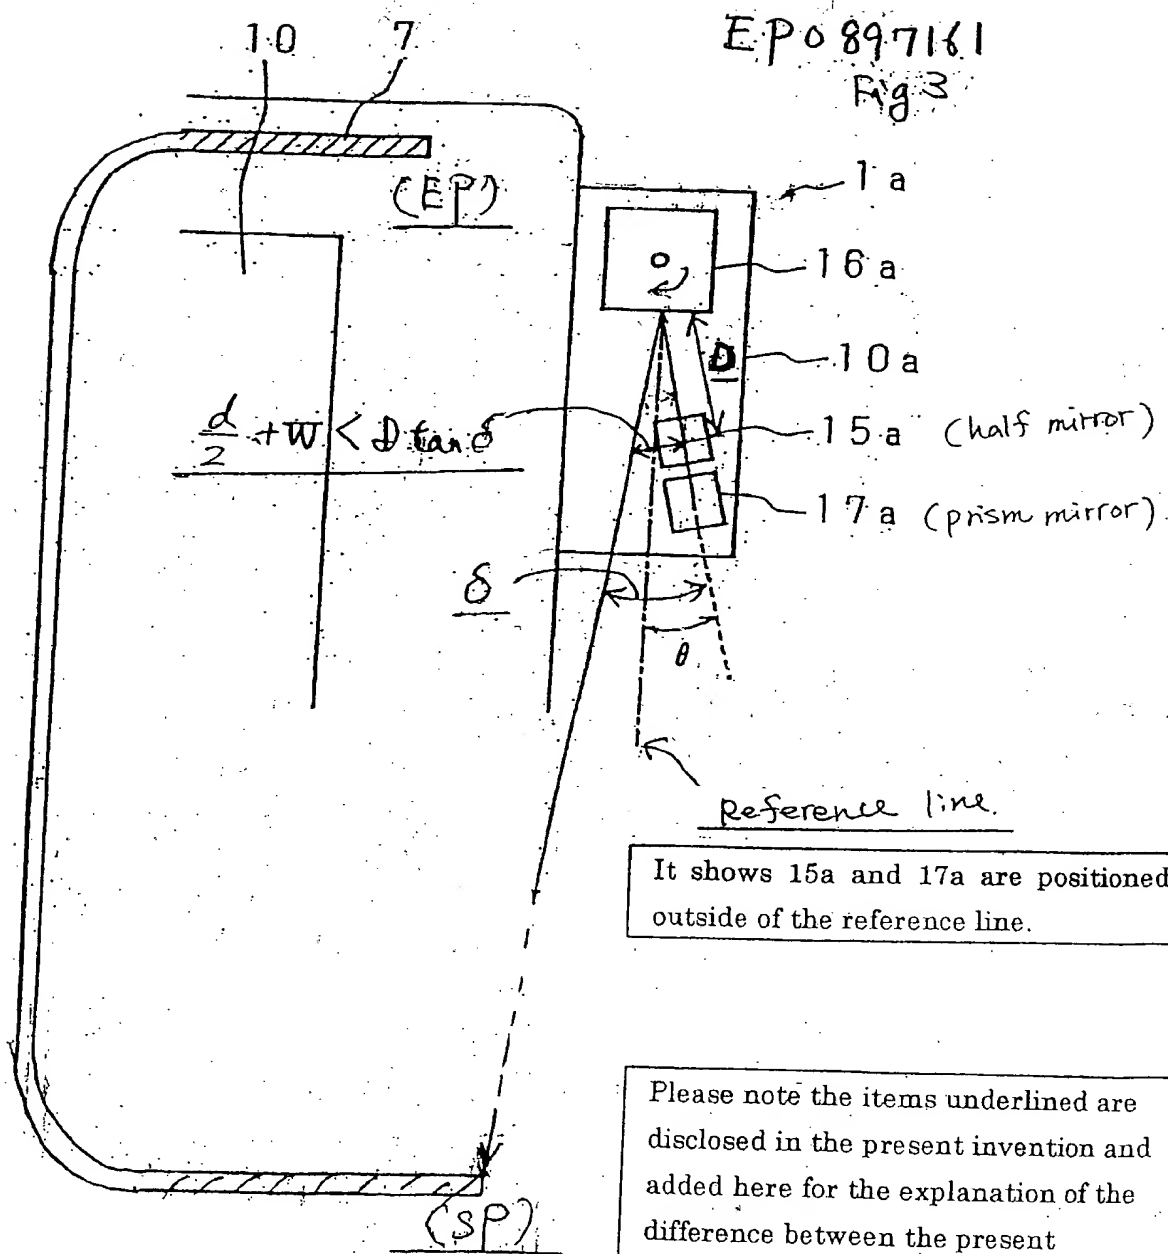 EP0897161
Fig 3
10
7
(EP)
1a
16a
D
10a
d/2 + W < D tan δ
15a (half mirror)
17a (prism mirror)
δ
θ
Reference line.
It shows 15a and 17a are positioned
outside of the reference line.
Please note the items underlined are
disclosed in the present invention and
added here for the explanation of the
difference between the present
(SP)